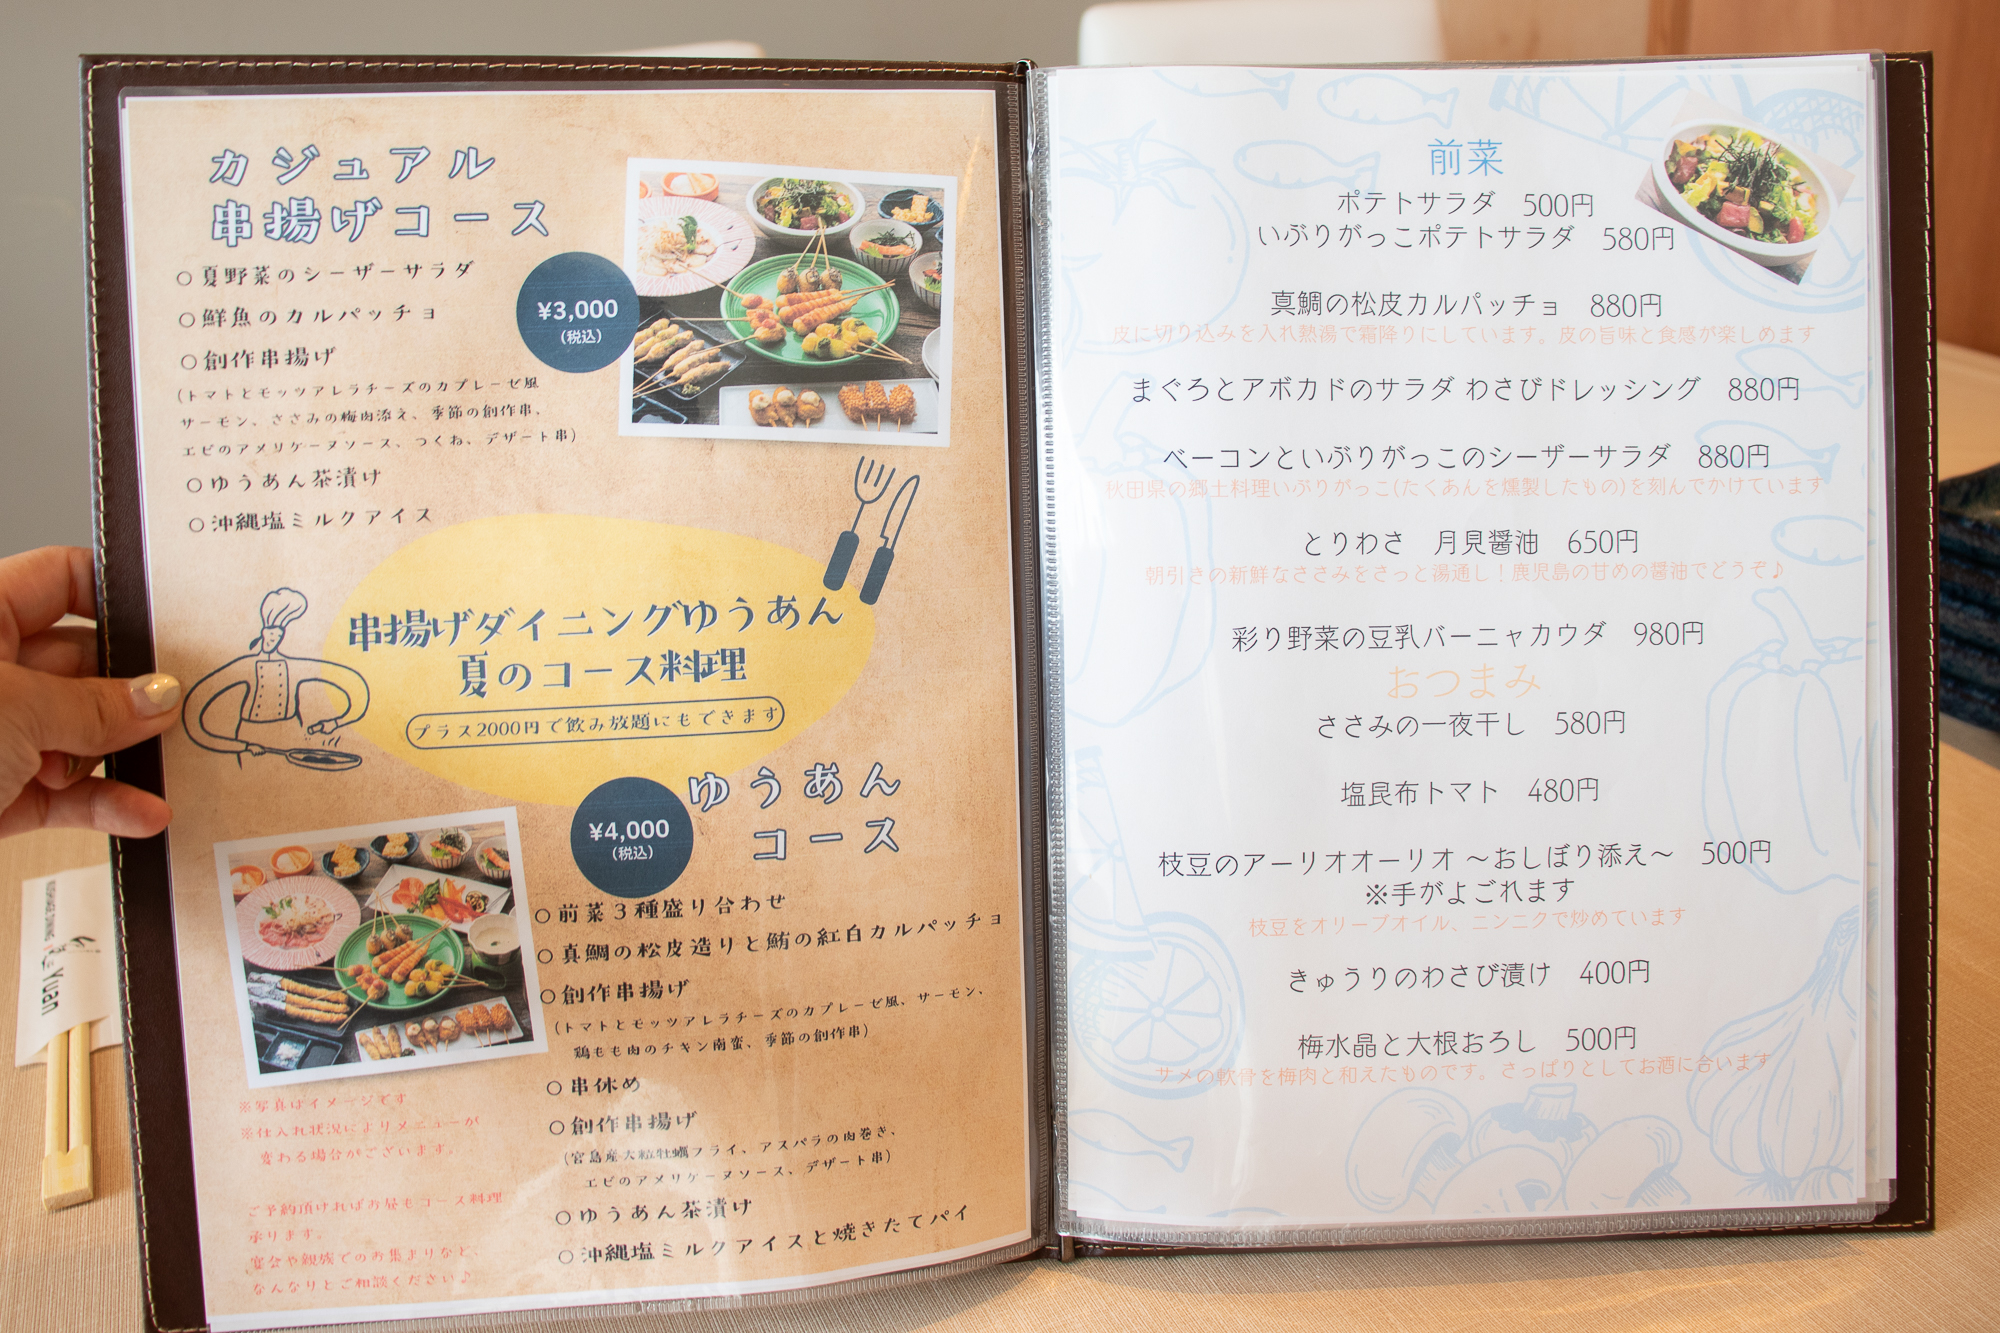 カジュアル
串揚げコース
○夏野菜のシーザーサラダ
○鮮魚のカルパッチョ
○創作串揚げ
(トマトとモッツアレラチーズのカプレーゼ風
サーモン、ささみの梅肉添え、季節の創作串、
エビのアメリケーヌソース、つくね、デザート串)
○ゆうあん茶漬け
○沖縄塩ミルクアイス
¥3,000
(税込)
串揚げダイニングゆうあん
夏のコース料理
プラス2000円で飲み放題にもできます
ゆうあん
コース
¥4,000
(税込)
○前菜3種盛り合わせ
○真鯛の松皮造りと鮪の紅白カルパッチョ
○創作串揚げ
(トマトとモッツアレラチーズのカプレーゼ風、サーモン、
鶏もも肉のチキン南蛮、季節の創作串)
○串休め
○創作串揚げ
(宮島産大粒牡蠣フライ、アスパラの肉巻き、
エビのアメリケーヌソース、デザート串)
○ゆうあん茶漬け
○沖縄塩ミルクアイスと焼きたてパイ
※写真はイメージです
※仕入れ状況によりメニューが
変わる場合がございます。
ご予約頂ければお昼もコース料理
承ります。
宴会や親族でのお集まりなど、
なんなりとご相談ください♪
Yuan
前菜
ポテトサラダ 500円
いぶりがっこポテトサラダ 580円
真鯛の松皮カルパッチョ 880円
皮に切り込みを入れ熱湯で霜降りにしています。皮の旨味と食感が楽しめます
まぐろとアボカドのサラダ わさびドレッシング 880円
ベーコンといぶりがっこのシーザーサラダ 880円
秋田県の郷土料理いぶりがっこ(たくあんを燻製したもの)を刻んでかけています
とりわさ 月見醤油 650円
朝引きの新鮮なささみをさっと湯通し！鹿児島の甘めの醤油でどうぞ♪
彩り野菜の豆乳バーニャカウダ 980円
おつまみ
ささみの一夜干し 580円
塩昆布トマト 480円
枝豆のアーリオオーリオ ～おしぼり添え～ 500円
※手がよごれます
枝豆をオリーブオイル、ニンニクで炒めています
きゅうりのわさび漬け 400円
梅水晶と大根おろし 500円
サメの軟骨を梅肉と和えたものです。さっぱりとしてお酒に合います